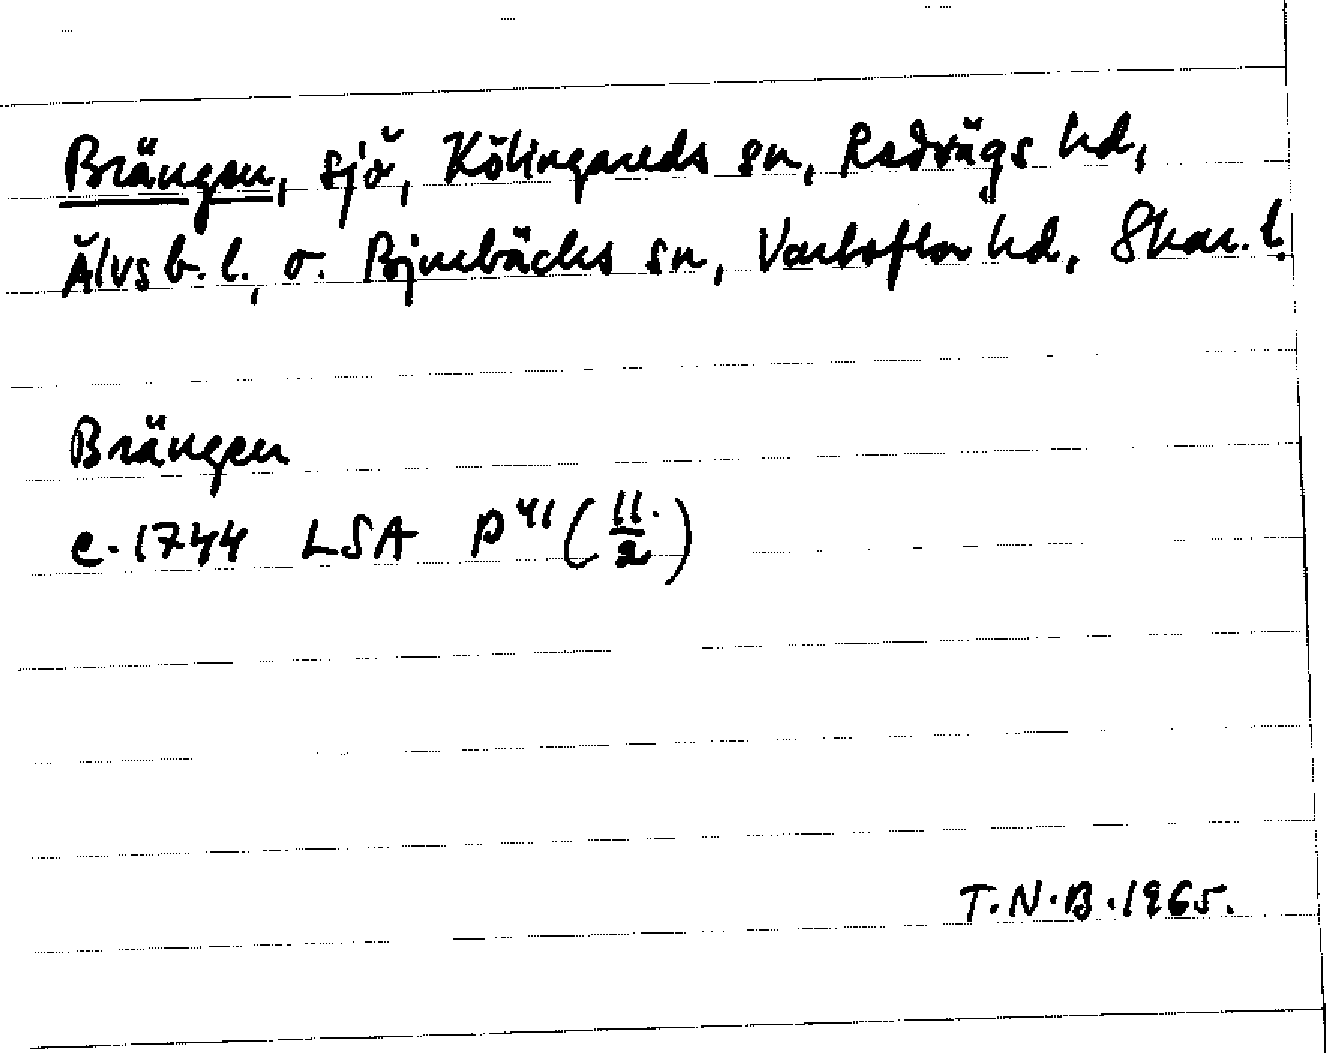 Brängen, sjö, Kölingareds sn, Redvägs hd,
Älvsb. l., o. Bjurbäcks sn, Vartofta hd, Skar. l.
Brängen
c. 1744 LSA P 41 (11./2)
T.N.B. 1965.